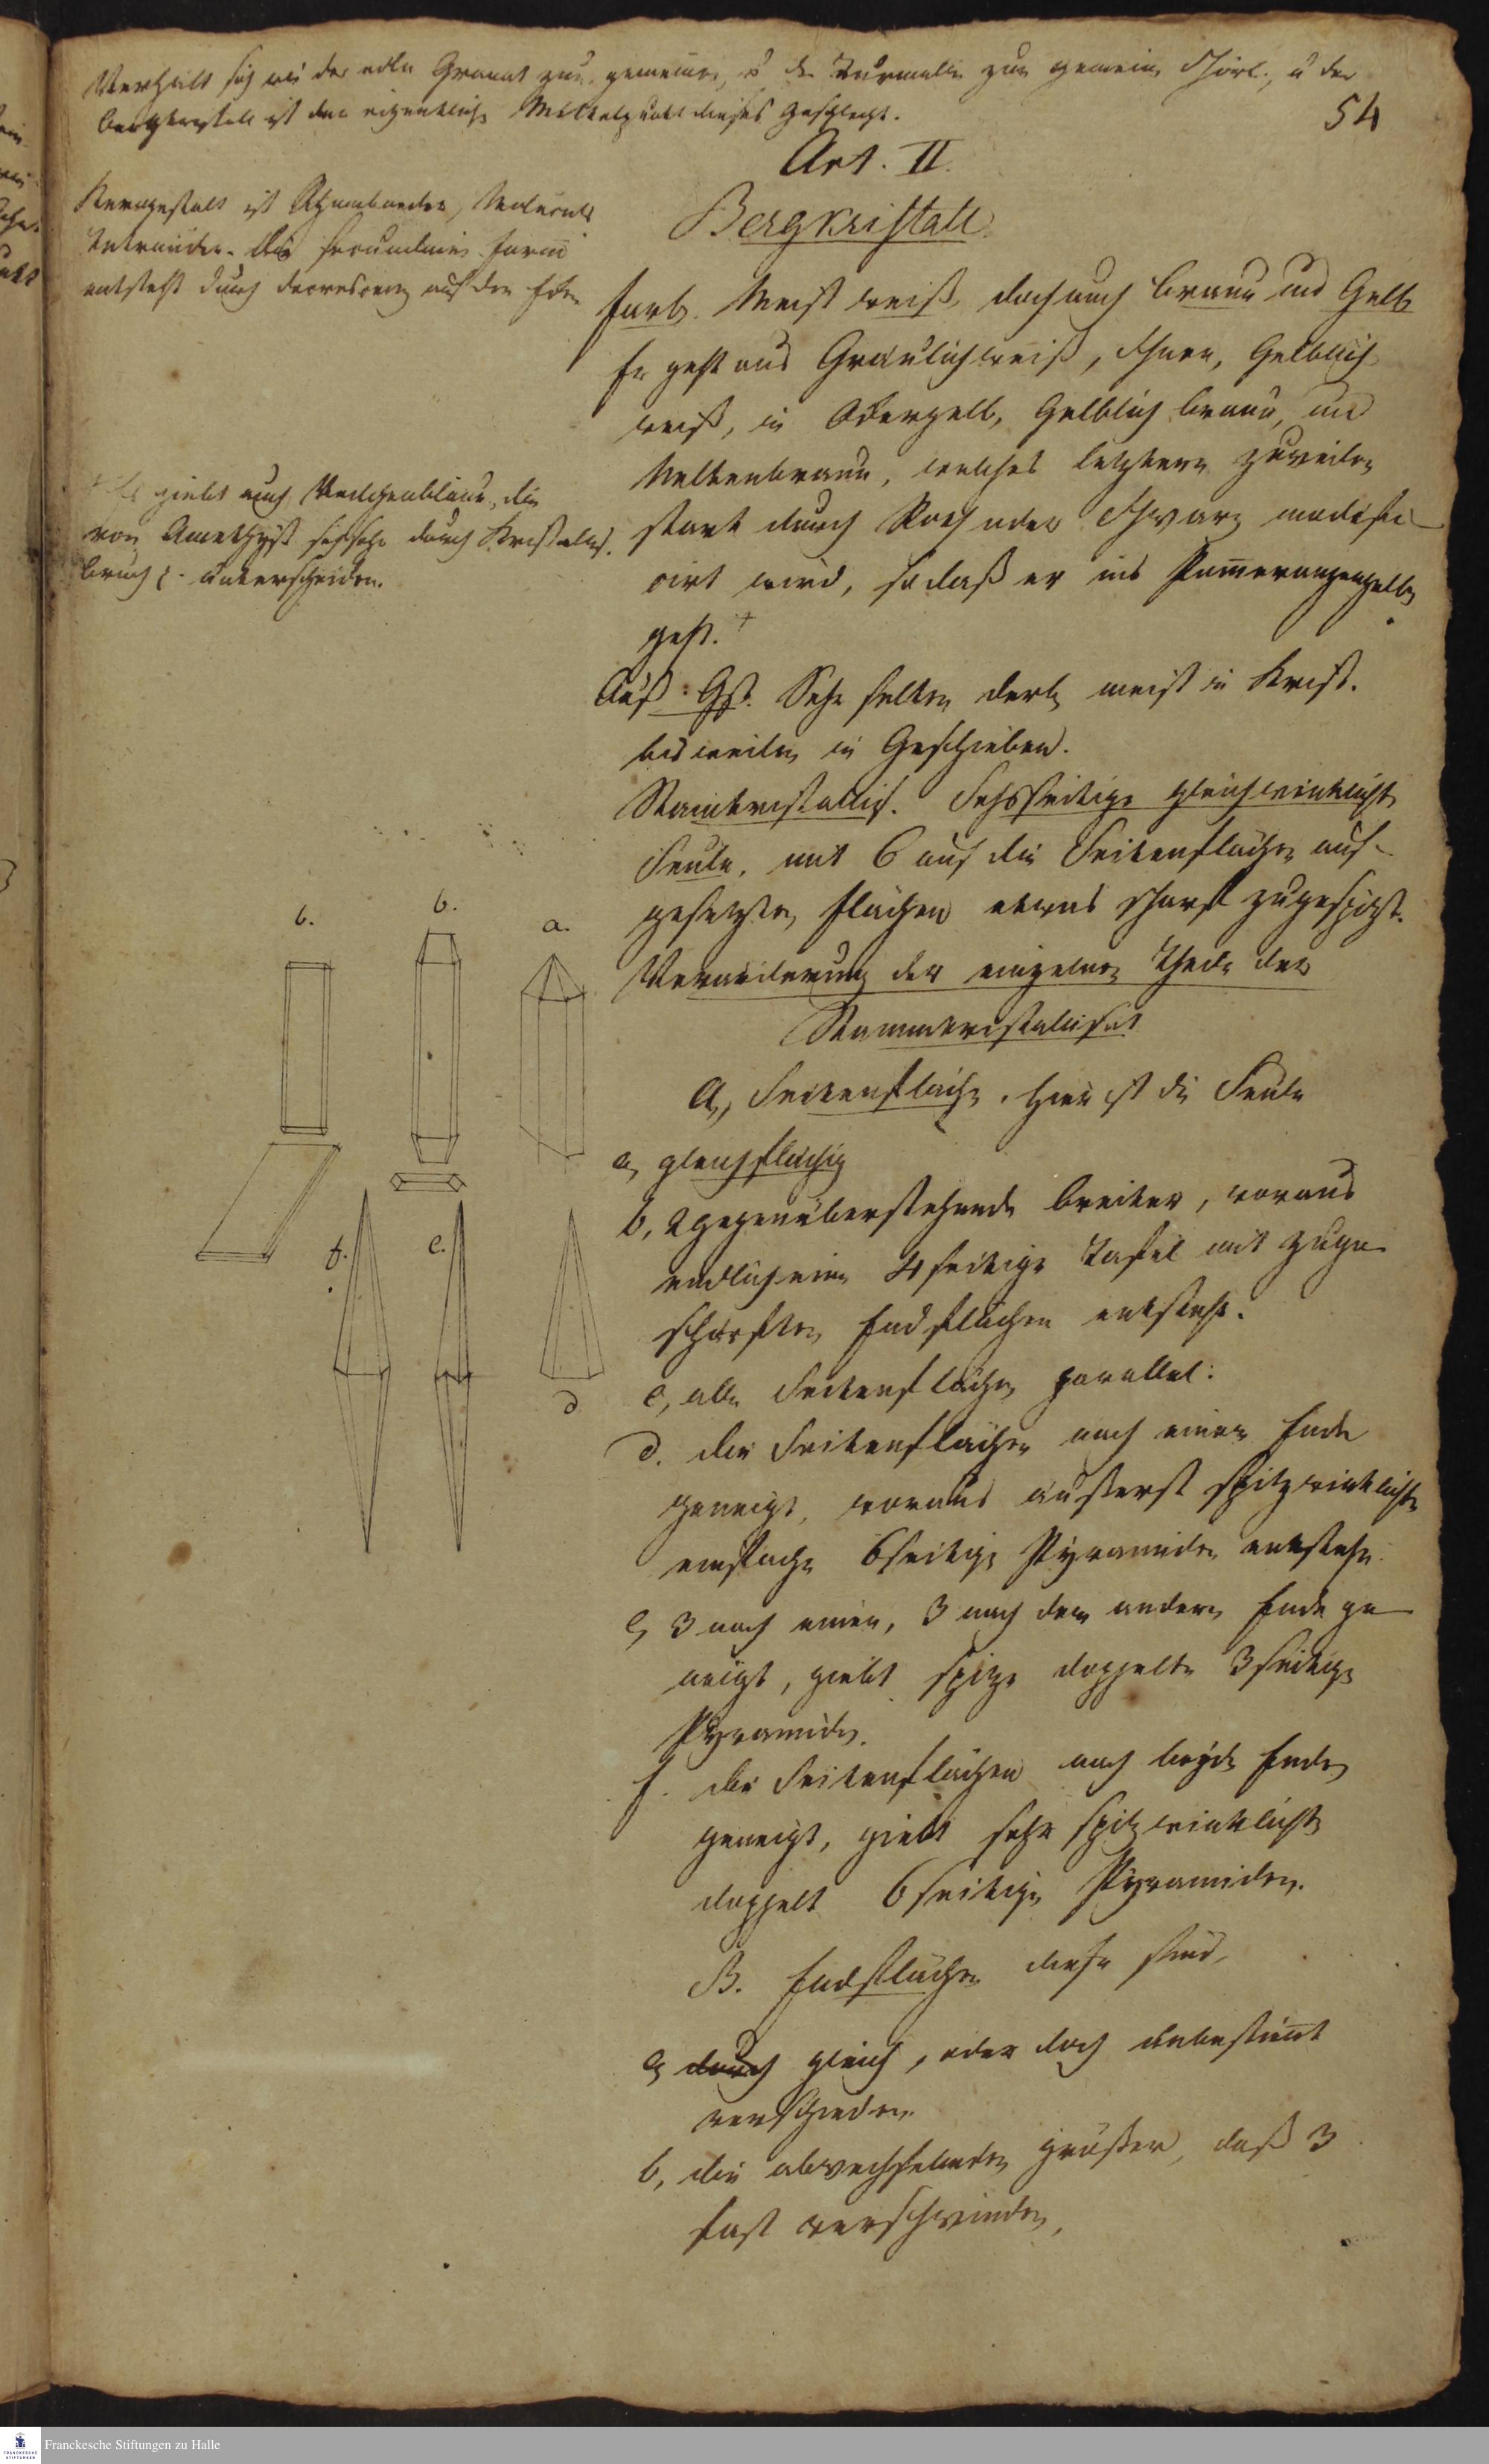 Verhält sich wie der edle Granat zum gemeinen, u der Turmalin zum gemeinen Schörl, u der
Bergkristall ist der eigentliche Mittelpunkt dieses Geschlechts.
54
Art. II.
Bergkristall
Kerngestalt ist Rhomboeder, Molecule
Tetraeder. Die secundaire Form
entsteht durch decrescenz auf den Eken
Farb. Meist weiß, doch auch braun und Gelb
Er geht aus Graulichweiß, Schnee, Gelblich
weiß, in Okergelb, Gelblich braun, und
Nelkenbraun, welches letztere zuweilen
stark durch Roth oder Schwarz modifi-
cirt wird, sodaß er ins Pomeranzengelbe
geht. +
+ Es giebt auch Veilchenblaue, die
von Amethyst sich sehr durch Kristallis.
bruch p. unterscheiden.
Auß. Gst. Sehr selten derb, meist in Krist.
bisweilen in Geschieben.
Stamkristallis. Sechsseitige gleichwinklichte
Seule, mit 6 auf die Seitenflächen auf-
gesetzten Flächen etwas scharf zugespizt.
Veränderung der einzelnen Theile der
Stammkristallisat
A, Seitenfläche. Hier ist die Seule
a, gleichflächig
b, 2 gegenüberstehende breiter, woraus
endlich eine 4seitige Tafel mit zuge
schärften Endflächen entsteht.
c, alle Seitenflächen parallel.
d. die Seitenflächen nach einem Ende
geneigt, woraus äußerst spitzwinklichte
einfache 6seitige Pyramiden entstehn.
e, 3 nach einem, 3 nach dem andern Ende ge
neigt, giebt spize doppelte 3seitige
Pyramiden.
f. die Seitenflächen nach beyden Enden
geneigt, giebt sehr spitzwinklichte
doppelt 6seitige Pyramiden.
B. Endflächen diese sind,
a, durch gleich, oder doch unbestimt
verschieden.
b, die abwechselnden größer, daß 3
fast verschwinden,
b.
b.
a.
f.
e.
d
Franckesche Stiftungen zu Halle